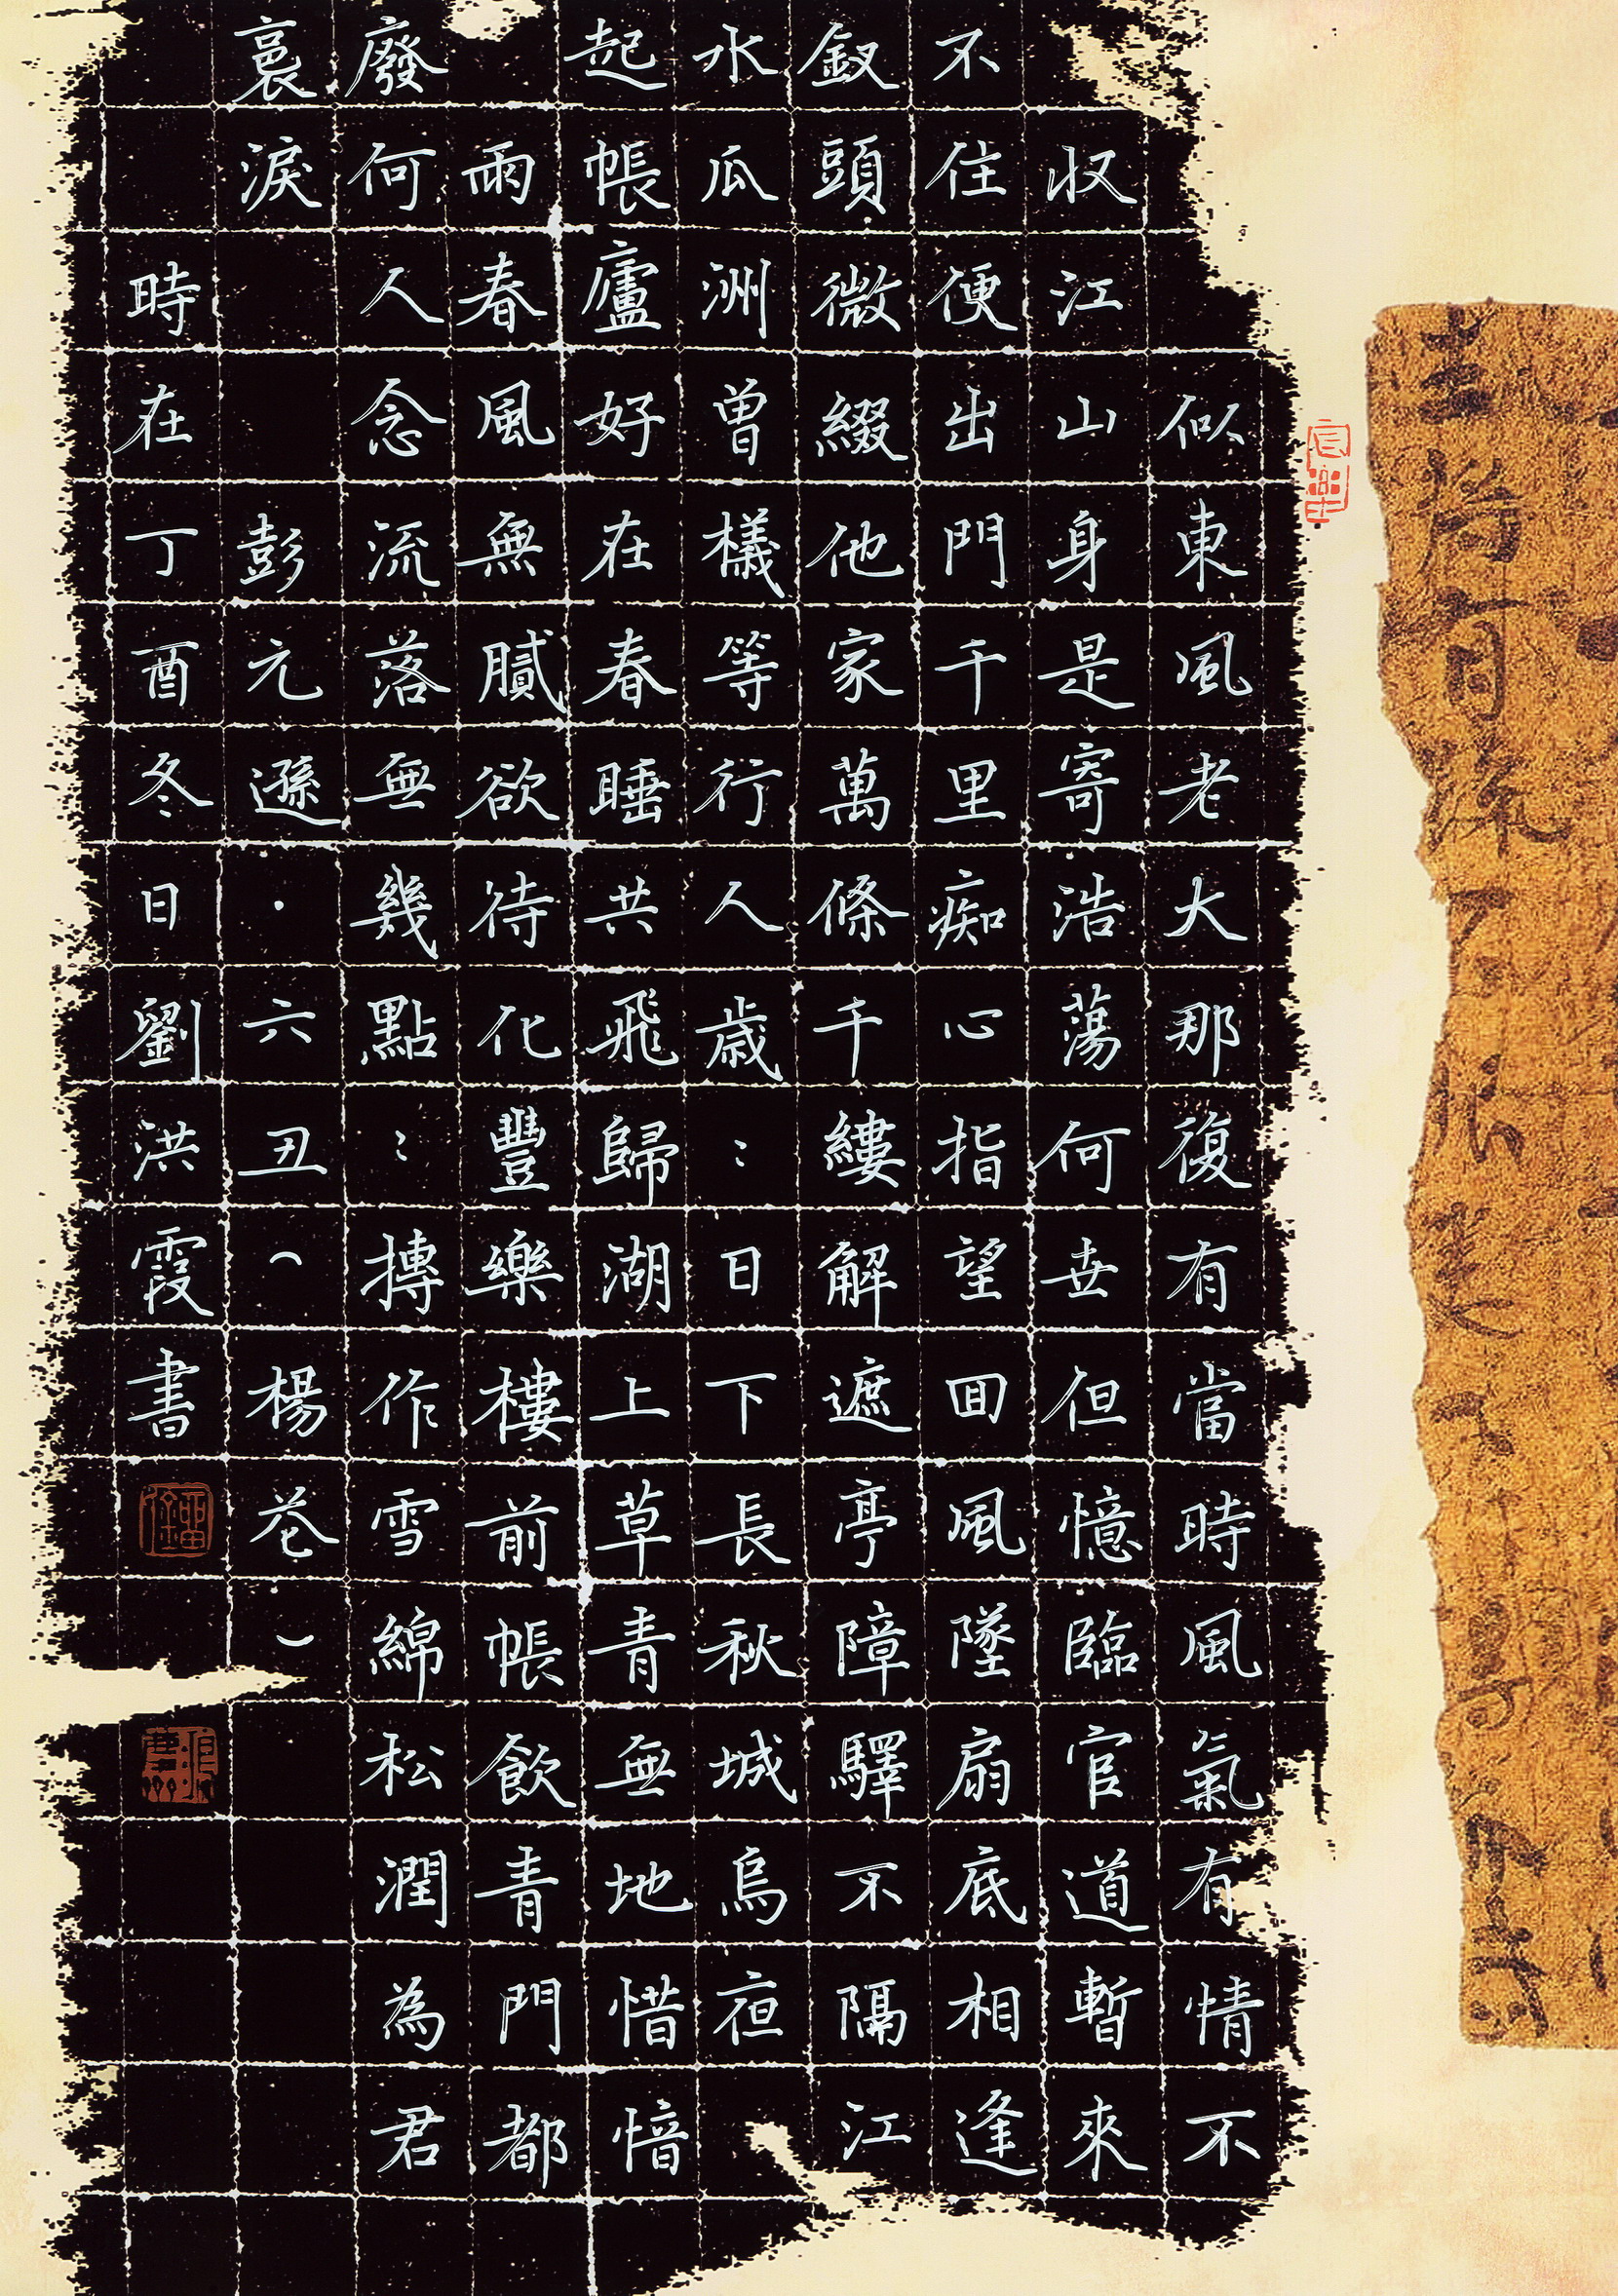 似東風老大那復有當時風氣有情不
収江山身是寄浩蕩何世但憶臨官道暫來
不住便出門千里痴心指望囬風墜扇底相逢
釵頭微綴他家萬條千縷解遮亭障驛不隔江
水瓜洲曾檥等行人歲：日下長秋城烏夜
起帳廬好在春睡共飛歸湖上草青無地惜愔
雨春風無膩欲待化豐樂樓前帳飲青門都
廢何人念流落無幾點：摶作雪綿松潤為君
裛淚 彭元遜·六丑（楊花）
時在丁酉冬日劉洪霞書